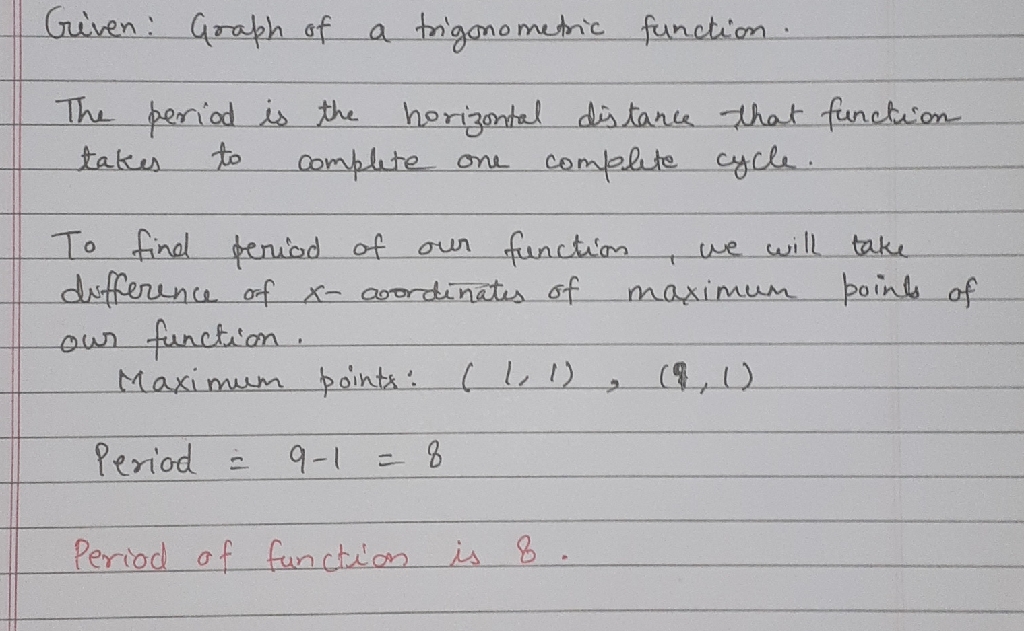 Given: Graph of a trigonometric function.
The period is the horizontal distance that function
takes to complete one complete cycle.
To find period of our function, we will take
difference of x-coordinates of maximum points of
our function.
Maximum points: (1,1), (9,1)
Period = 9-1 = 8
Period of function is 8.